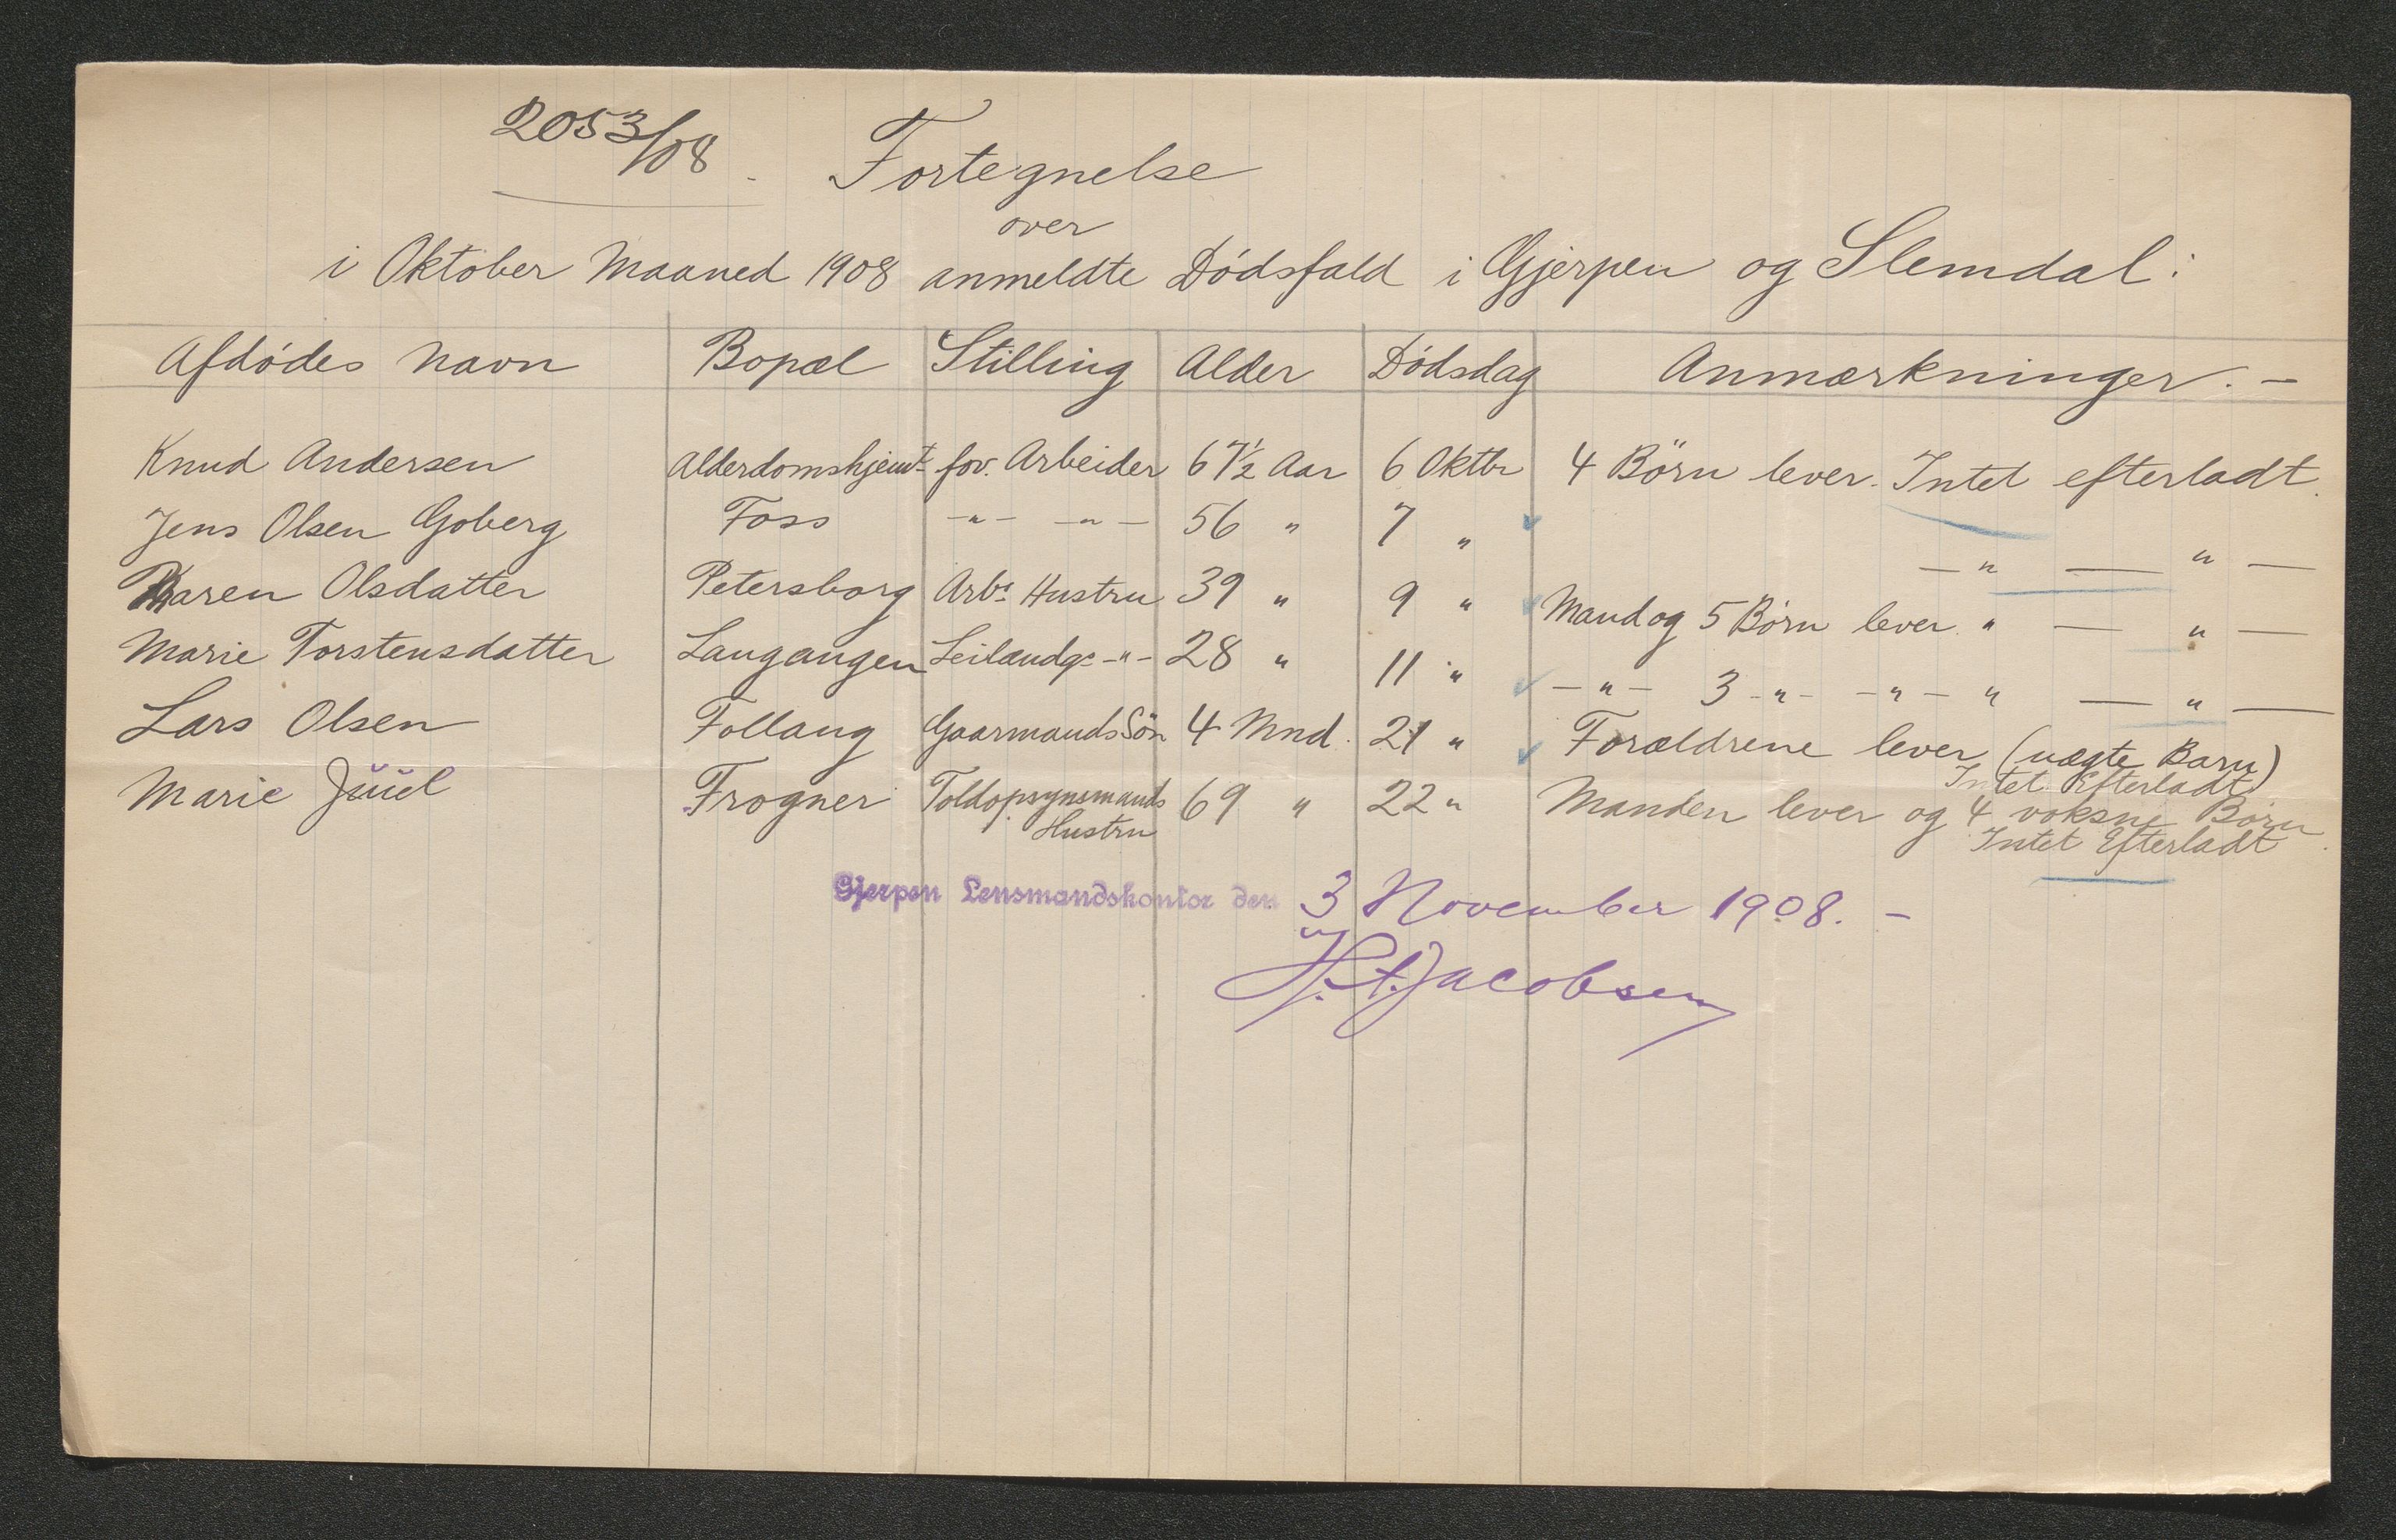 2053/08.
Fortegnelse
over
i Oktober Maaned 1908 anmeldte Dödsfald i Gjerpen og Slemdal:
Afdödes Navn Bopæl Stilling Alder Dödsdag Anmærkninger. -
Knud Andersen Alderdomshjemt. fov. Arbeider 67½ Aar 6 Oktbr 4 Börn lever. Intet efterladt.
Jens Olsen Goberg Foss -"- -"- 56 " 7 " -"- -"-
Karen Olsdatter Petersborg Arbs. Hustru 39 " 9 " Mand og 5 Börn lever " - " -
Marie Torstensdatter Langangen Leilændgs -"- 28 " 11 " -"- 3 -"- -"- " - " -
Lars Olsen Follaug Gaarmands Sön 4 Mnd. 21 " Forældrene lever (uægte Barn)
Intet Efterladt
Marie Juul Frogner Toldopsynsmands 69 " 22 " Manden lever og 4 voksne Börn
Hustru Intet Efterladt.
Gjerpen Lensmandskontor den 3 November 1908. -
Jacobsen